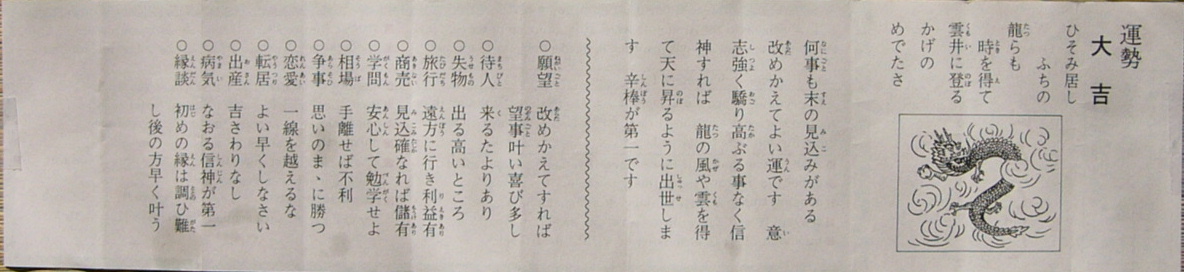 運勢
大吉
ひそみ居し
ふちの
龍らも
時を得て
雲井に登る
かげの
めでたさ
何事も末の見込みがある
改めかえてよい運です 意
志強く驕り高ぶる事なく信
神すれば 龍の風や雲を得
て天に昇るように出世しま
す 辛棒が第一です
○願望 改めかえてすれば
望事叶い喜び多し
○待人 来るたよりあり
○失物 出る高いところ
○旅行 遠方に行き利益有
○商売 見込確なれば儲有
○学問 安心して勉学せよ
○相場 手離せば不利
○争事 思いのまゝに勝つ
○恋愛 一線を越えるな
○転居 よい早くしなさい
○出産 吉さわりなし
○病気 なおる信神が第一
○縁談 初めの縁は調ひ難
し後の方早く叶う